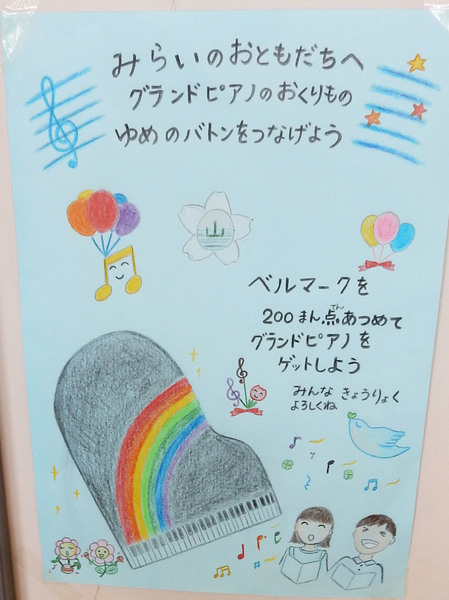 みらいのおともだちへ
グランドピアノのおくりもの
ゆめのバトンをつなげよう
山
ベルマークを
200まん点あつめて
てん
グランドピアノを
ゲットしよう
みんな きょうりょく
よろしくね